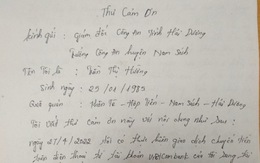 Thư Cảm Ơn
Kính gửi: Giám đốc Công an Tỉnh Hải Dương
Trưởng Công an huyện Nam Sách
Tên Tôi là : Trần Thị Hường
Sinh ngày : 29/01/1985
Quê quán : Nhân Tễ - Hợp Tiến - Nam Sách - Hải Dương
Tôi viết thư cảm ơn này với nội dung như sau:
ngày 27/4/2022 Tôi có thực hiện giao dịch chuyển tiền
điện thoại từ tài khoản Vietcombank của tôi sang tài